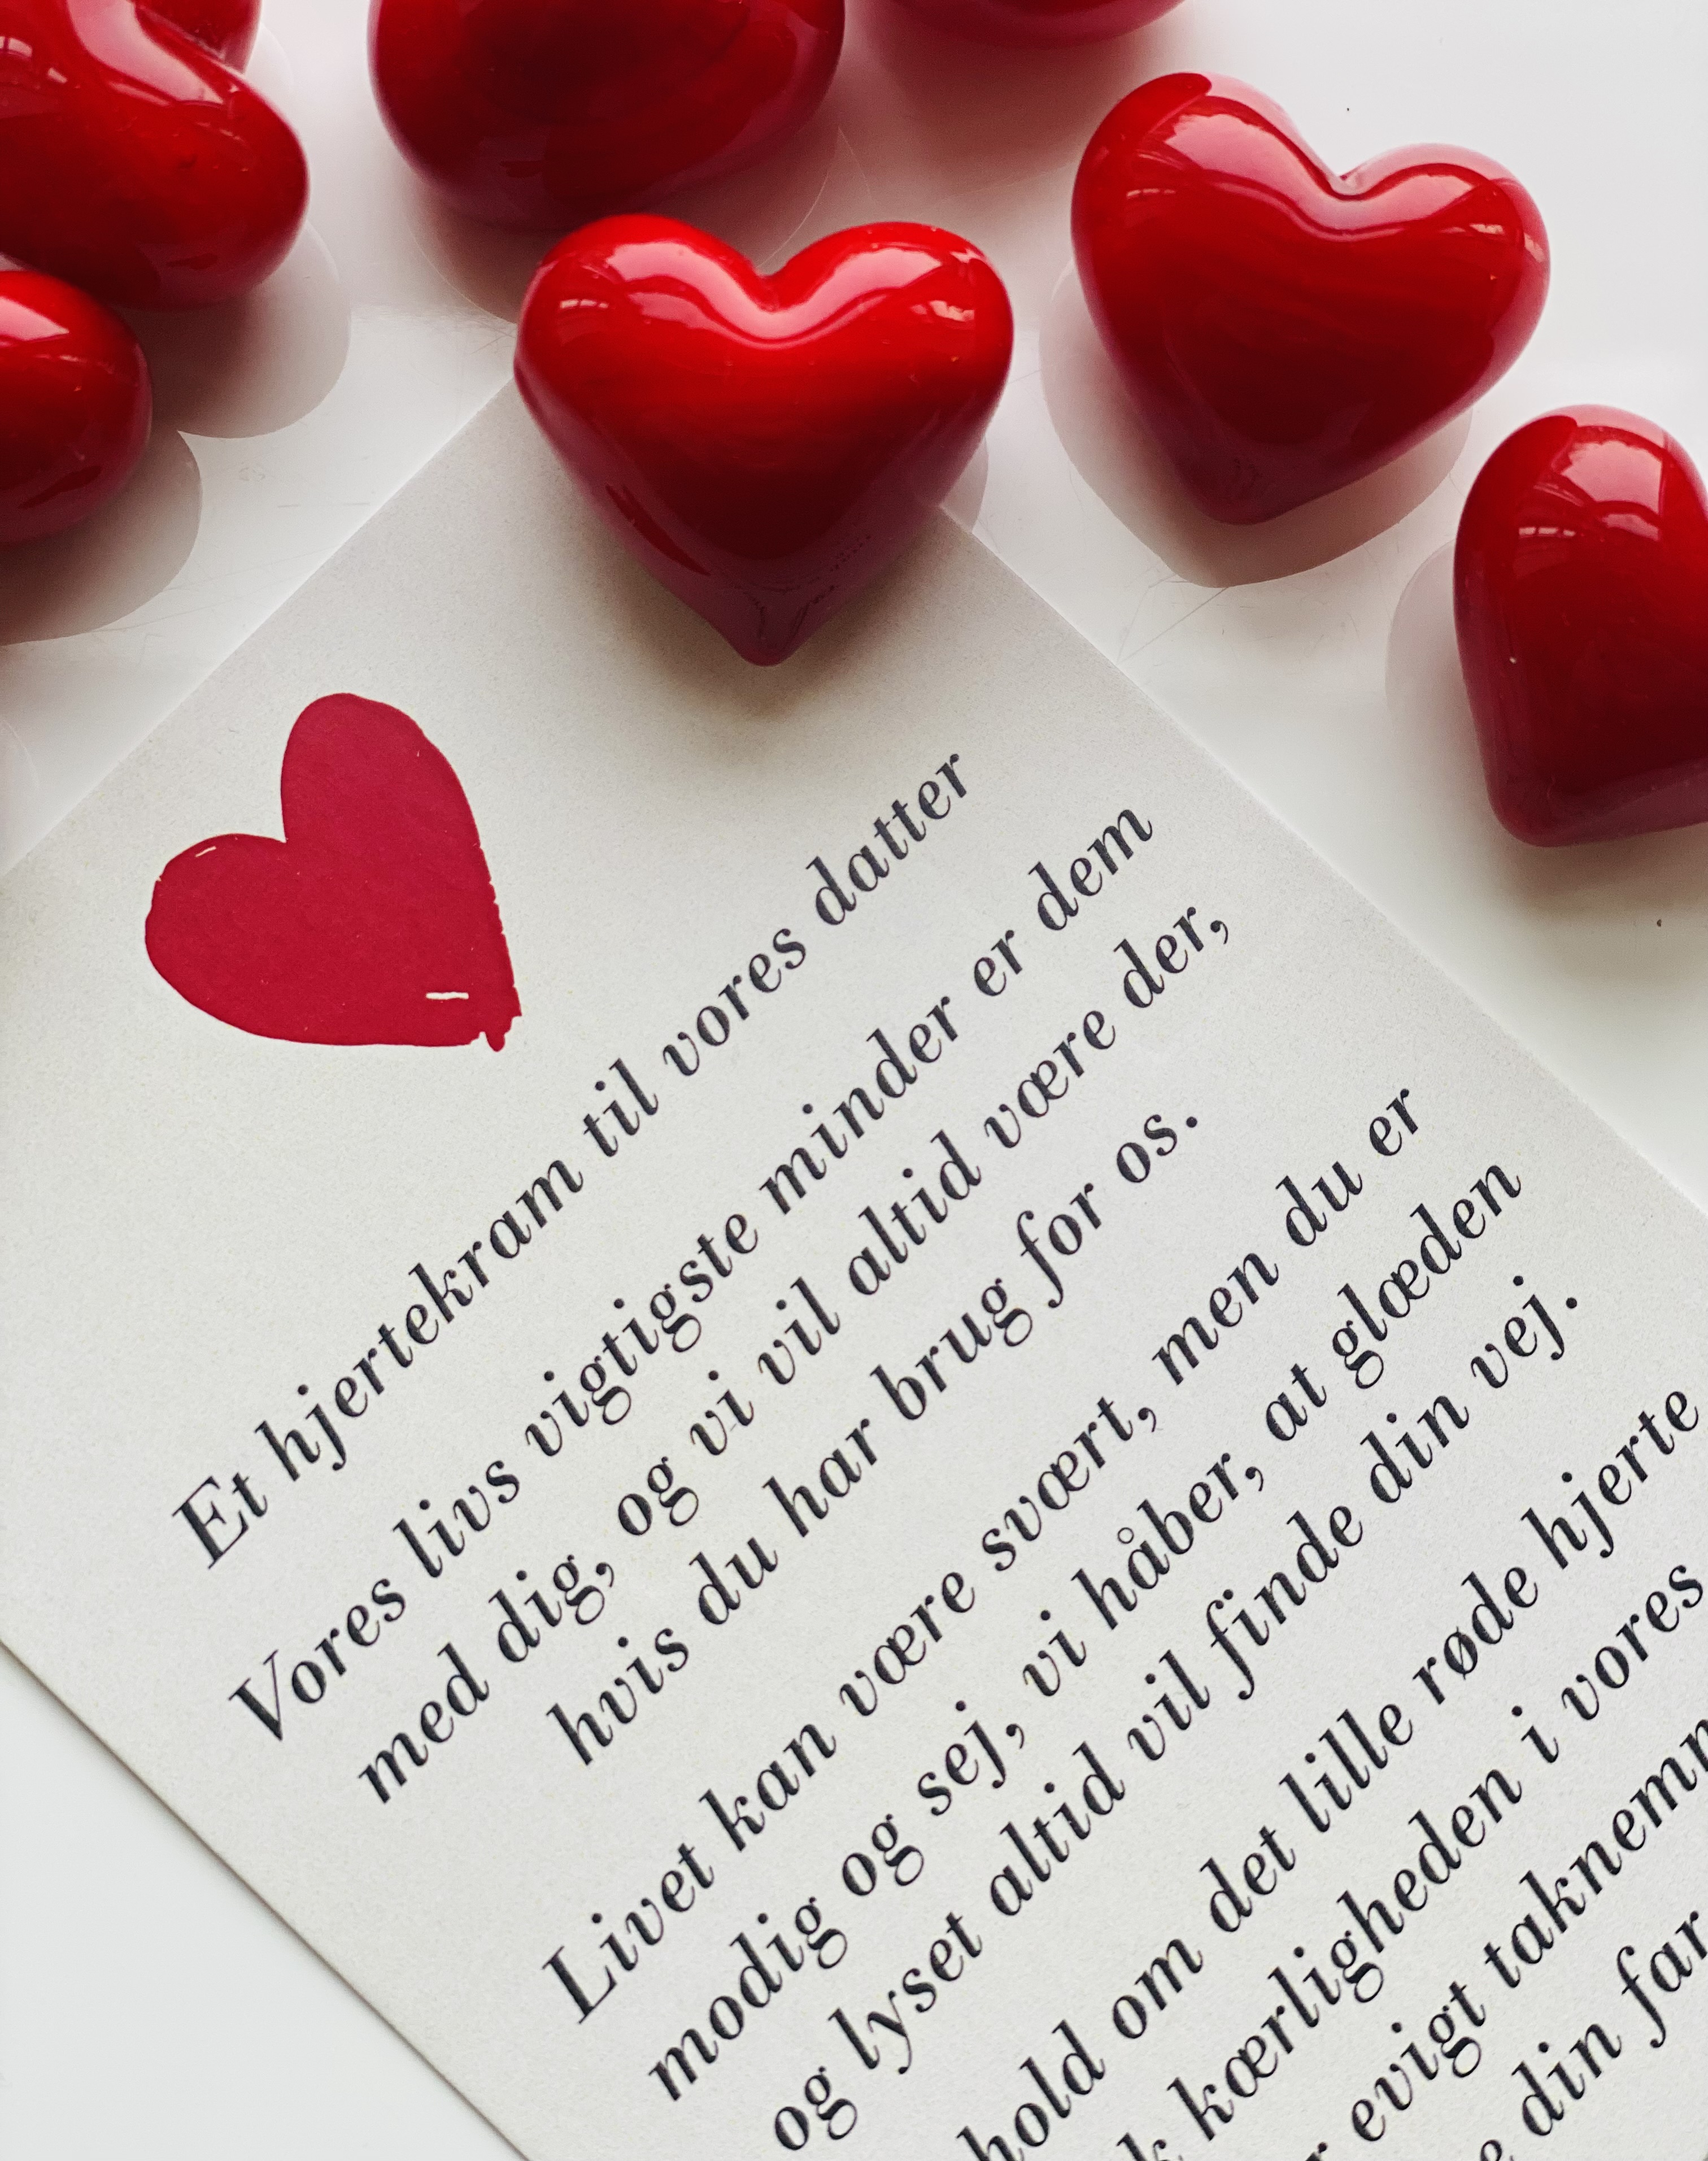 Et hjertekram til vores datter
Vores livs vigtigste minder er dem
med dig, og vi vil altid være der,
hvis du har brug for os.
Livet kan være svært, men du er
modig og sej, vi håber, at glæden
og lyset altid vil finde din vej.
hold om det lille røde hjerte
kærligheden i vores
evigt
din far